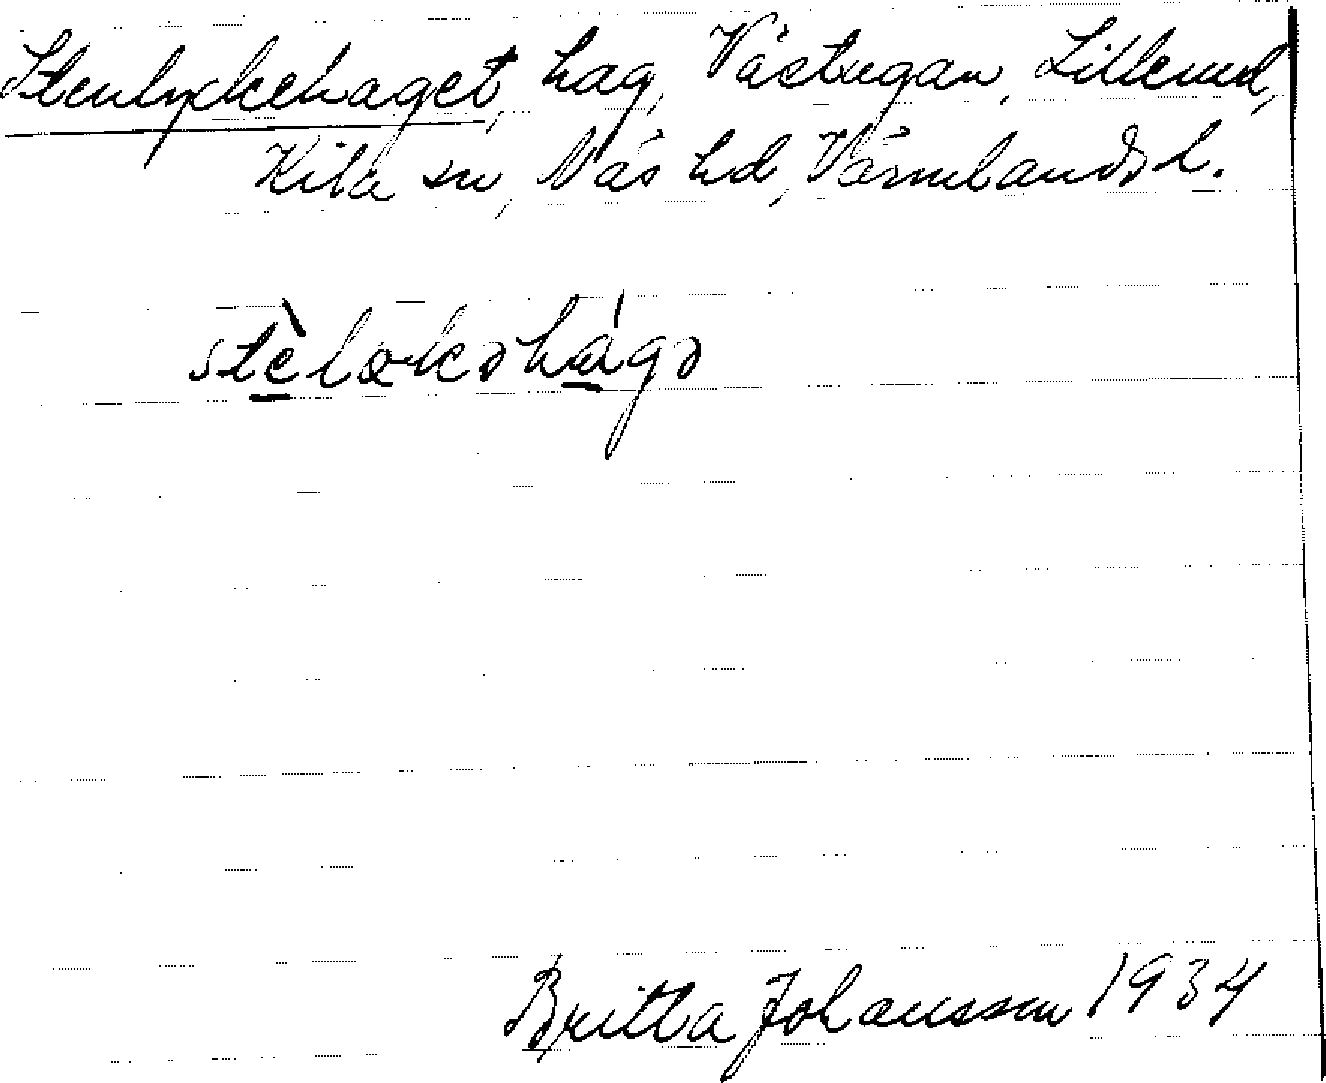 Stenlyckehaget, hag, Västugan, Lillerud,
Kila sn, Näs hd, Värmlands l.
stèlækəhágə
Britta Johansson 1934